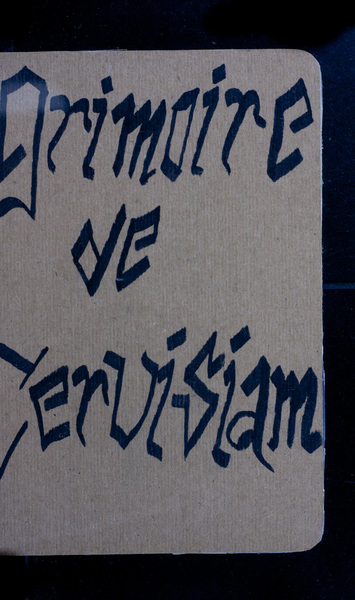 Grimoire
de
Cervisiam